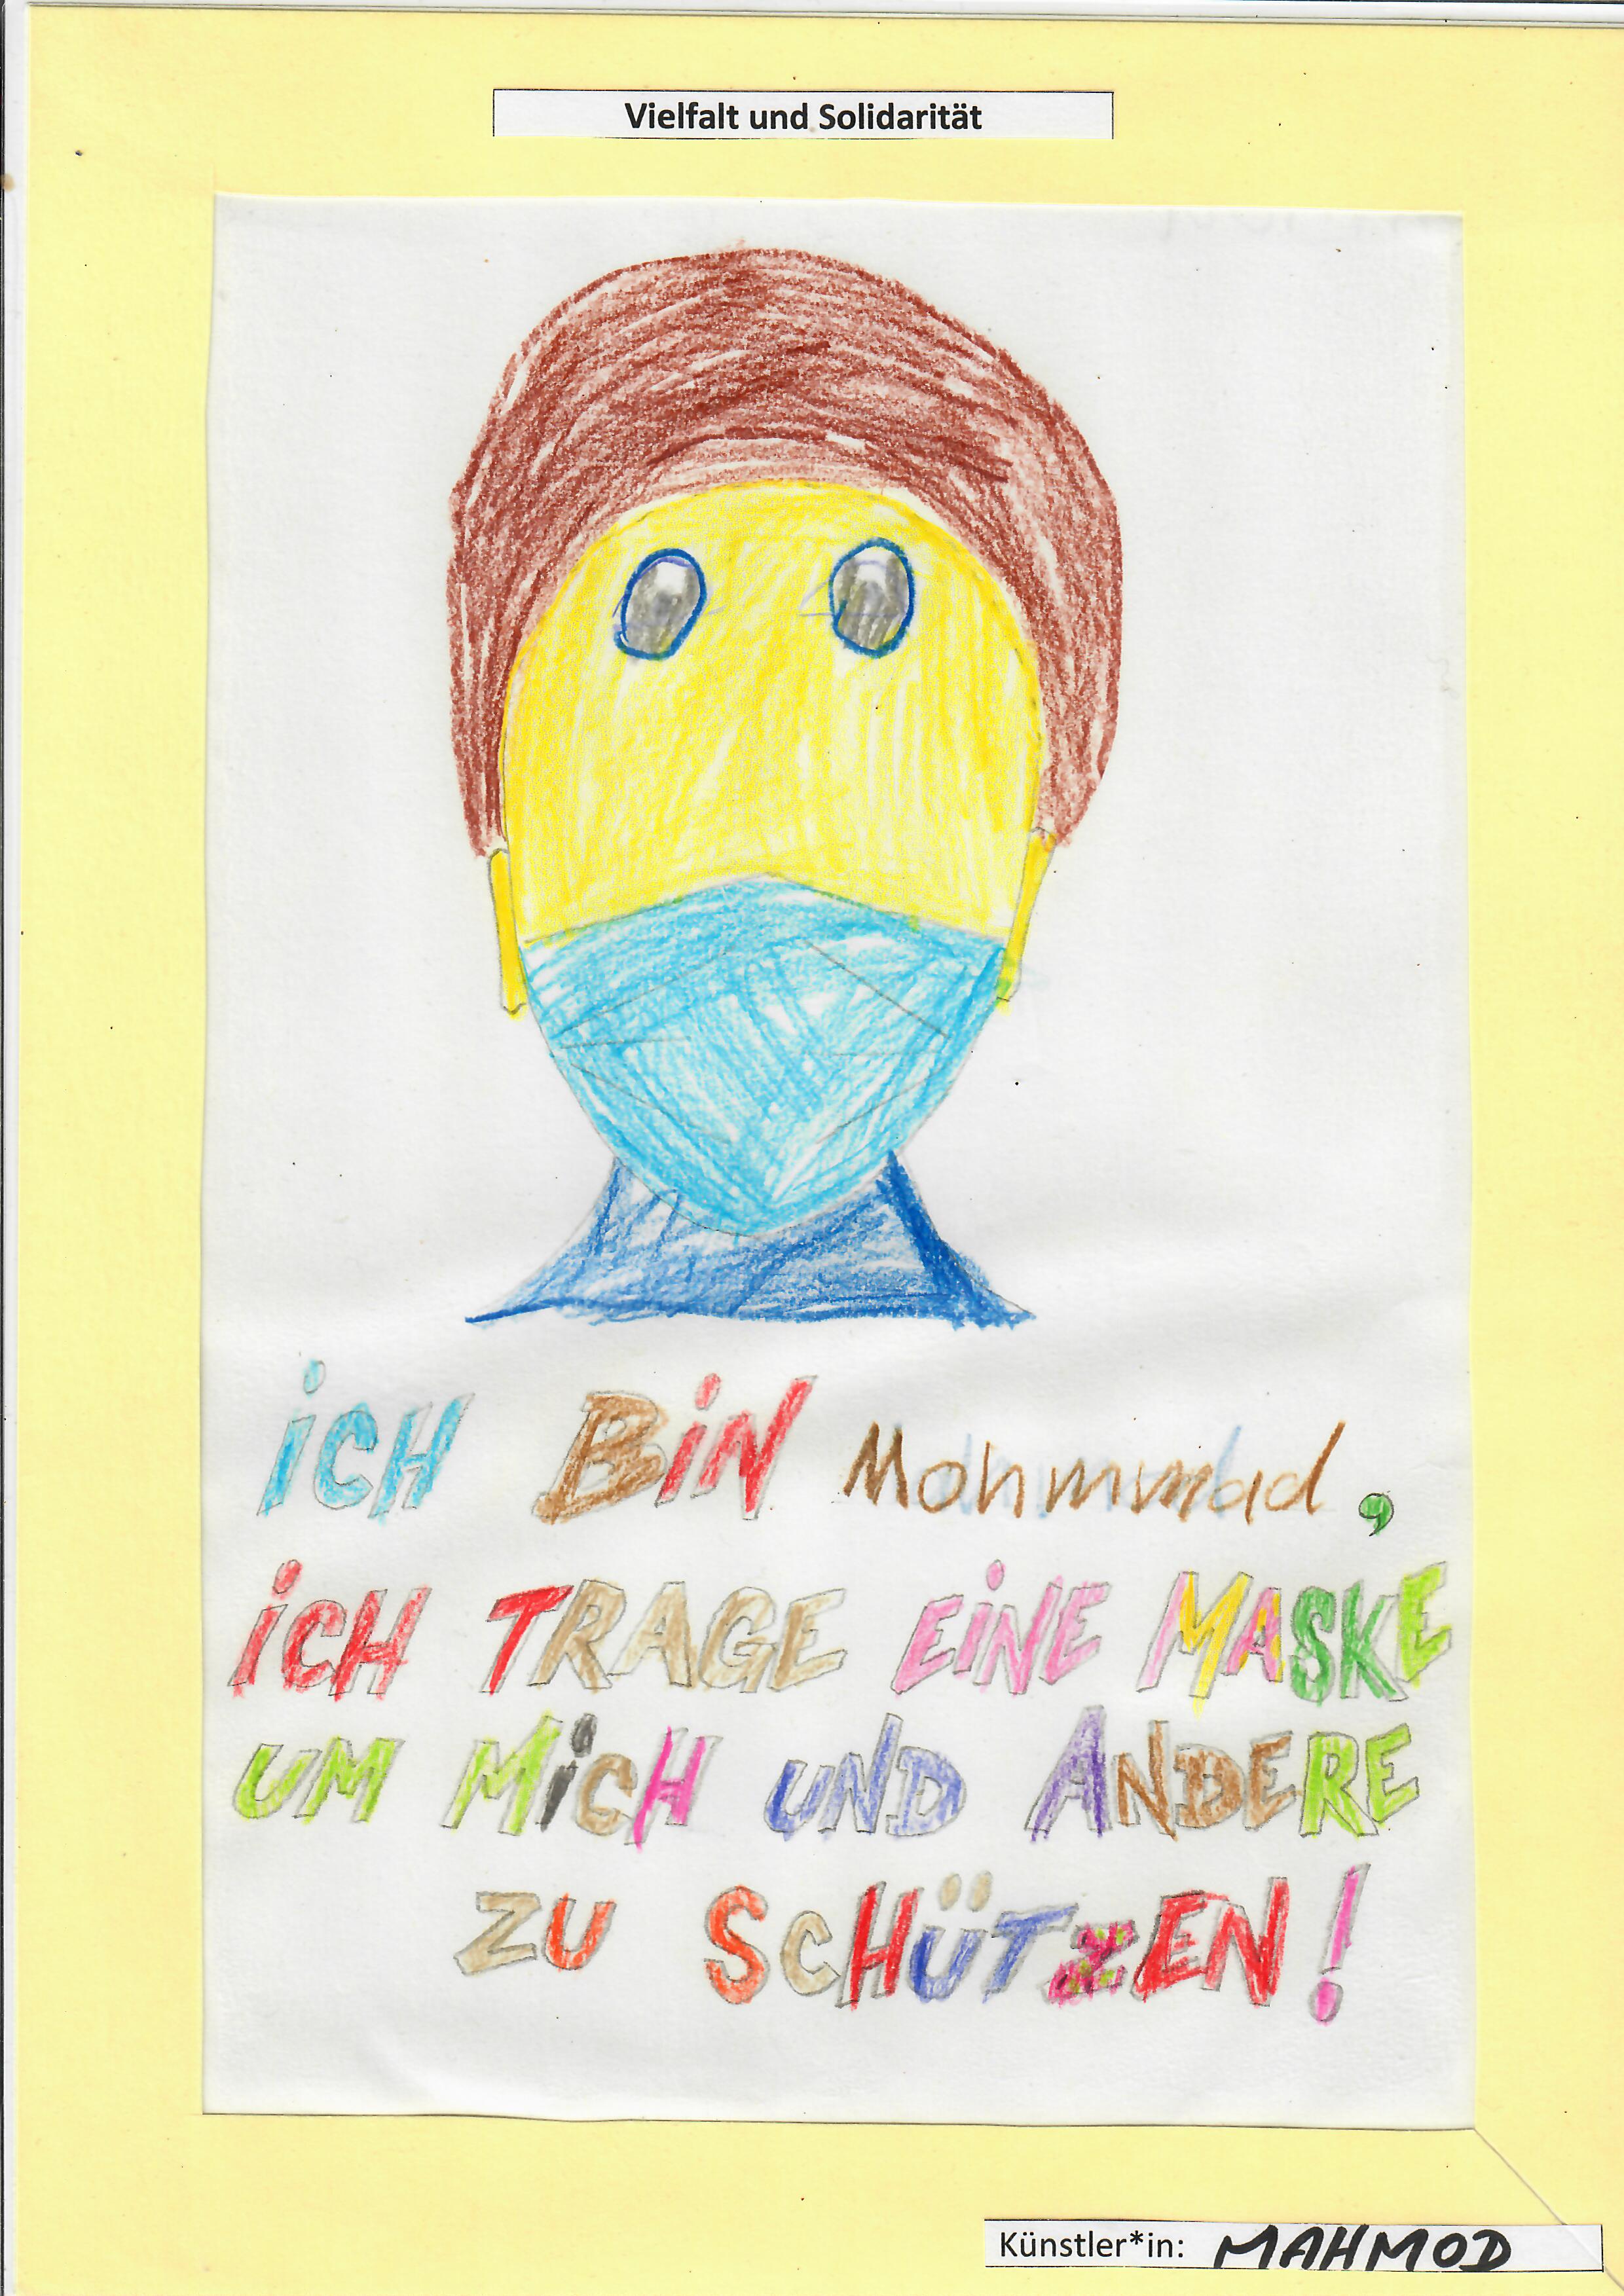 Vielfalt und Solidarität
iCH BiN Mohmmad,
iCH TRAGE EiNE MASKE
UM MiCH UND ANDERE
ZU SCHÜTZEN!
Künstler*in: MAHMOD